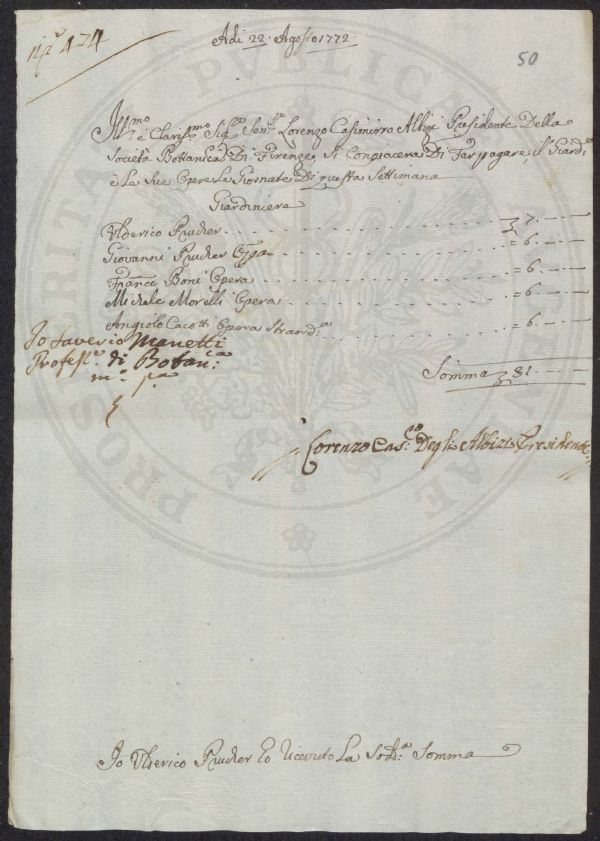 n.° 474
Adi 22. Agosto 1772.
50
Ill.mo
e Claris.mo Sig.re Sen.re Lorenzo Casimirro Albizi Presidente Della
Società Bottanica Di Firenze, Si Conpiacerà Di Far pagare il Giard.e
e La Sue Opere Le Giornate Di questa Settimana
Giardiniera
Ulderico Prucher . . . 7. —
Giovanni Prucher Opa . . . = 6. —
Franc.o Boni Opera . . . = 6. —
Michele Morelli Opera . . . = 6. —
Angiolo Cacotti Opera Straord.a . . . = 6. —
Io Saverio Manetti
Profess.e di Botan.ca
m.o p.a
Somma 31. —
Lorenzo Cas.ro Degli Albizi Presidente
Io Ulderico Prucher ho Riceuto La Sod.a Somma
PUBLICAE
PROSPERITATI